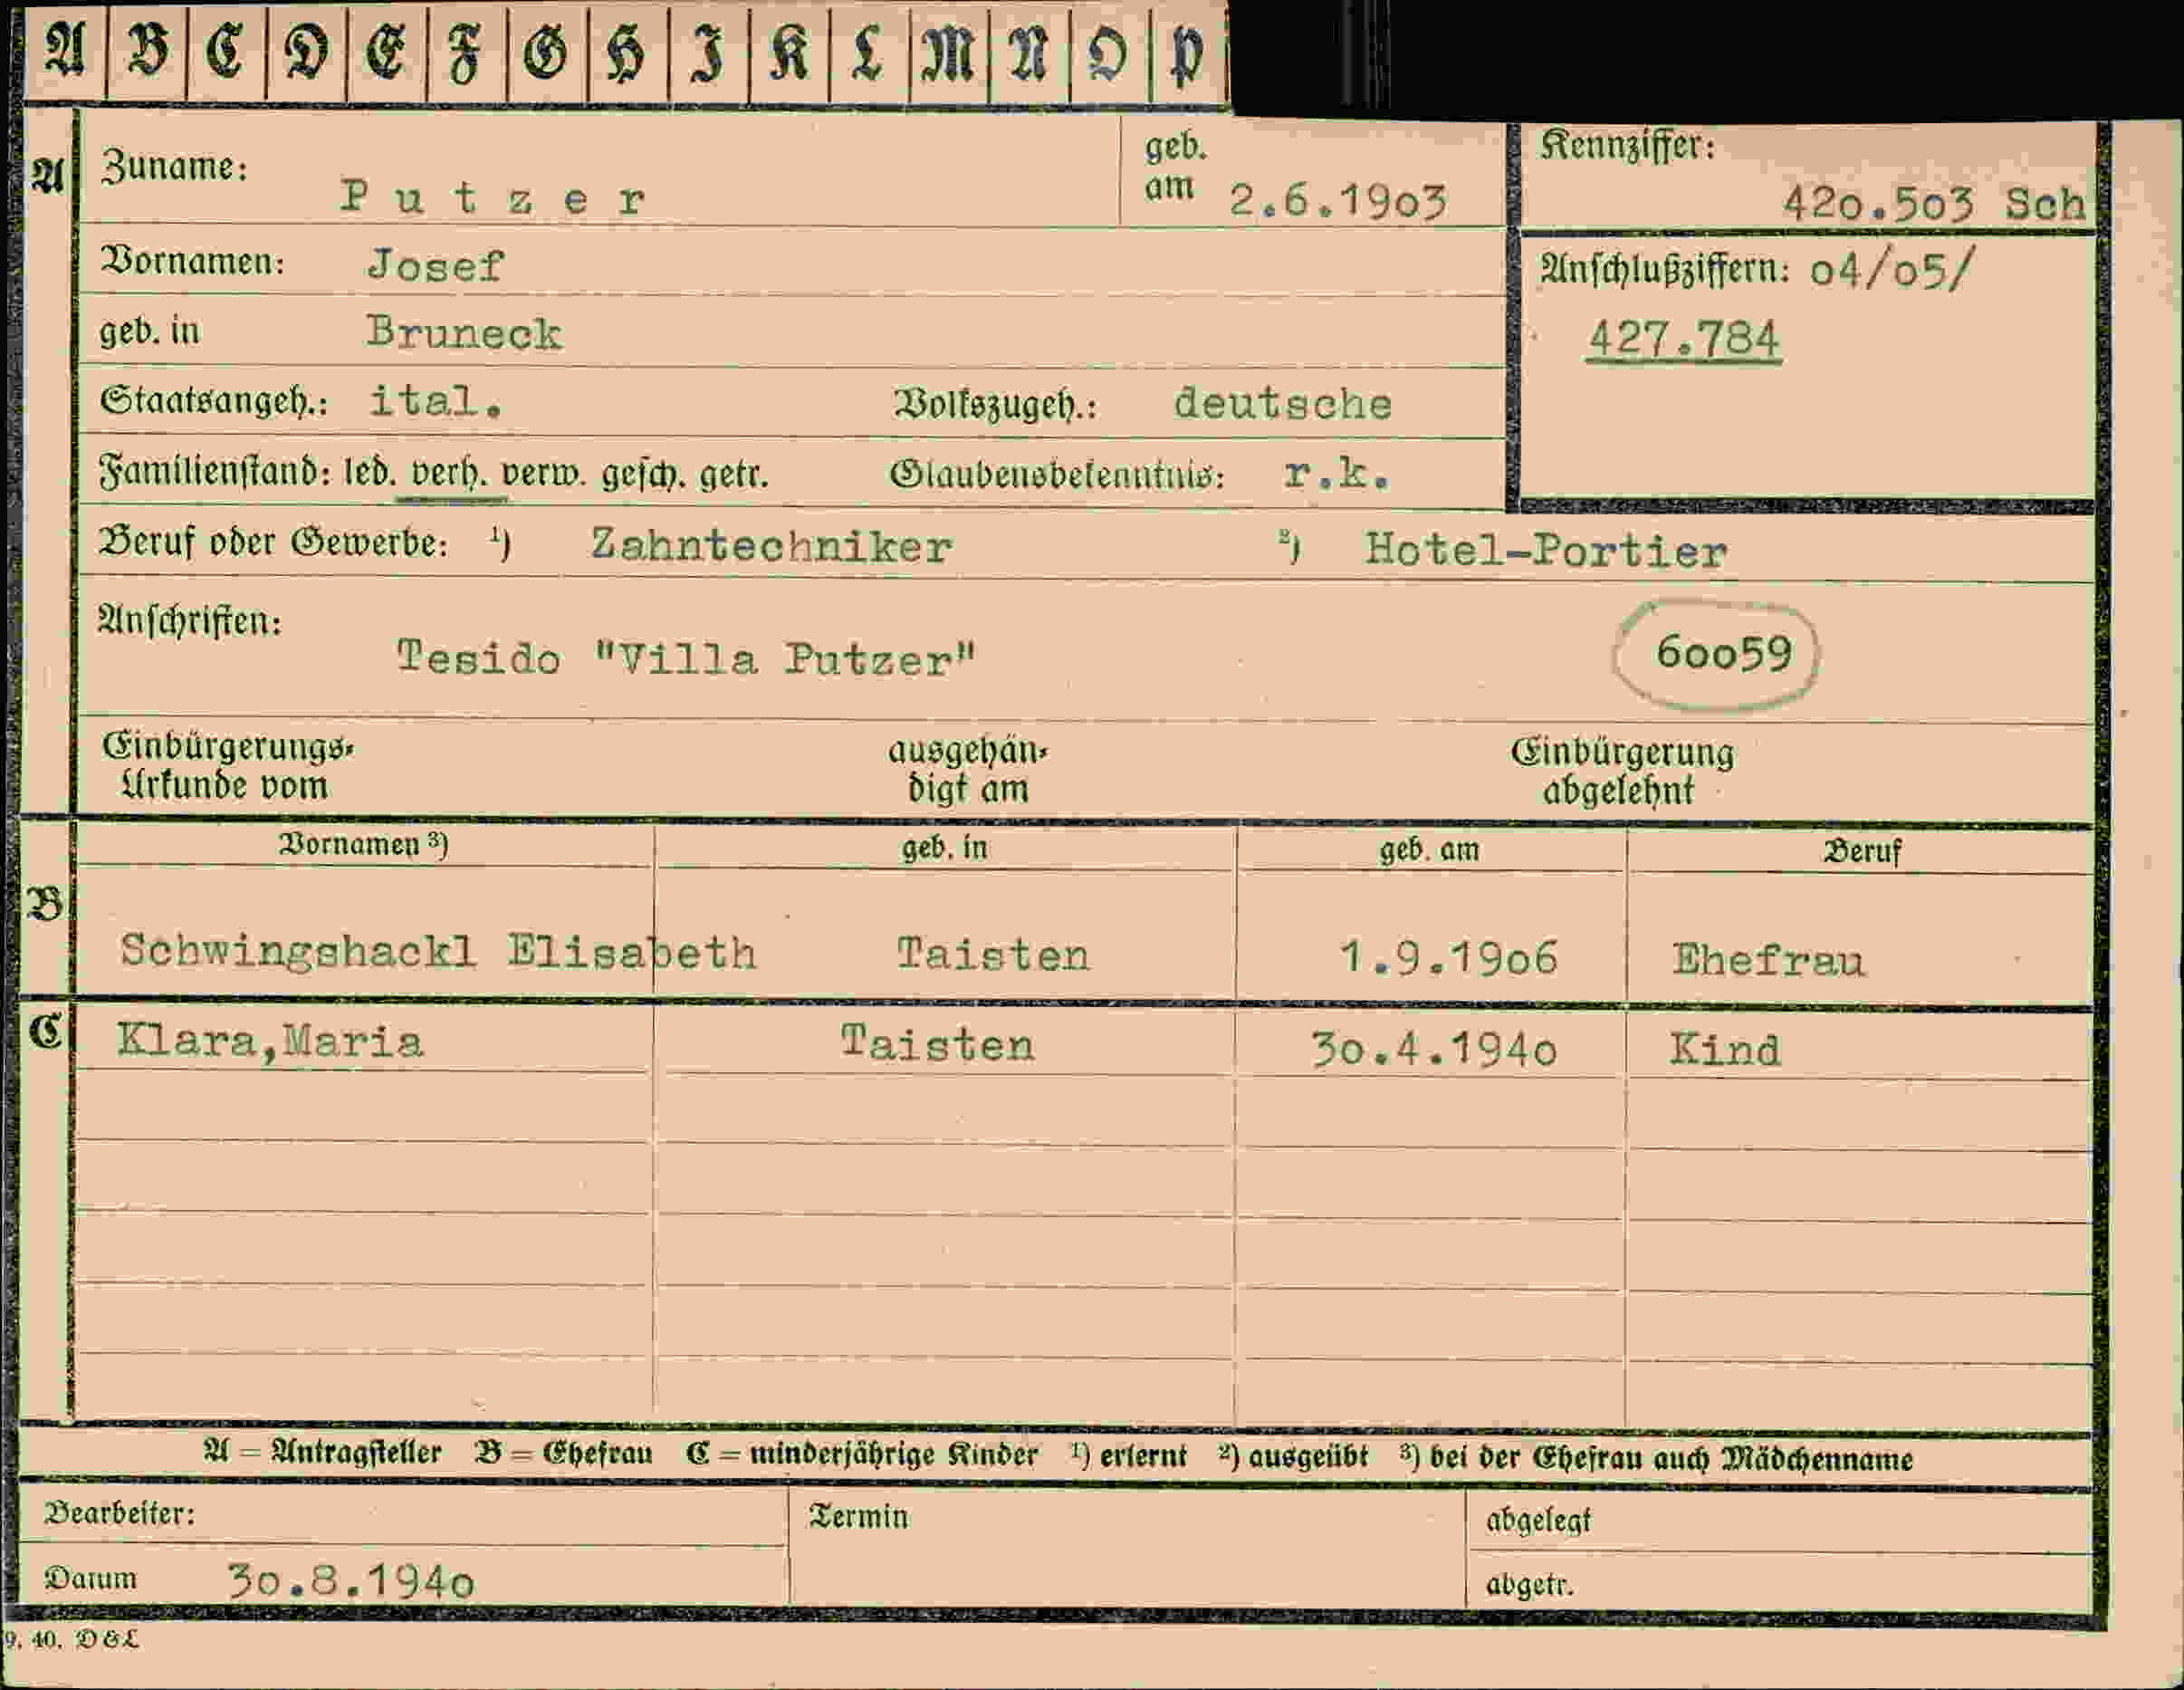 A B C D E F G H I K L M N O P
A Zuname: Putzer geb. am 2.6.1903 Kennziffer: 420.503 Sch
Vornamen: Josef Anschlußziffern: 04/05/
geb. in Bruneck 427.784
Staatsangeh.: ital. Volkszugeh.: deutsche
Familienstand: led. verh. verw. gesch. getr. Glaubensbekenntnis: r.k.
Beruf oder Gewerbe: ¹) Zahntechniker ²) Hotel-Portier
Anschriften: Tesido "Villa Putzer" 60059
Einbürgerungs- ausgehän- Einbürgerung
Urkunde vom digt am abgelehnt
Vornamen ³) geb. in geb. am Beruf
B Schwingshackl Elisabeth Taisten 1.9.1906 Ehefrau
C Klara,Maria Taisten 30.4.1940 Kind
A = Antragsteller B = Ehefrau C = minderjährige Kinder ¹) erlernt ²) ausgeübt ³) bei der Ehefrau auch Mädchenname
Bearbeiter: Termin abgelegt
Datum 30.8.1940 abgetr.
9. 40. D & L